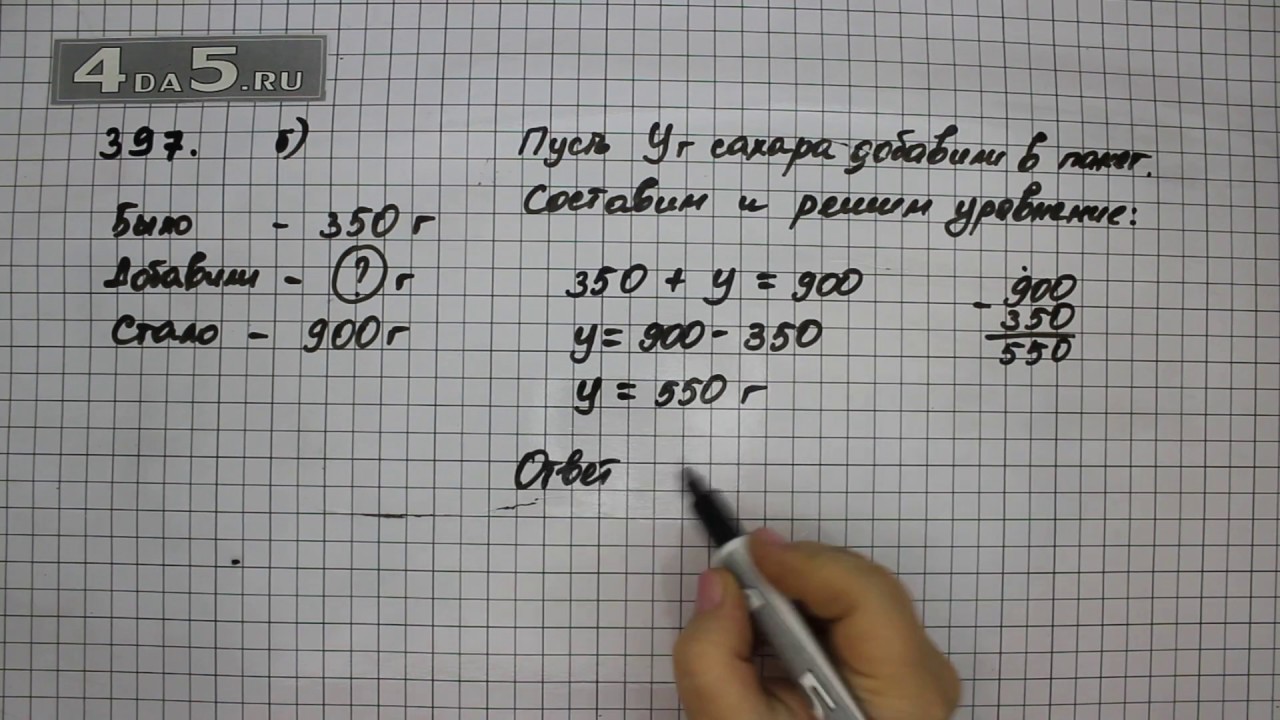 4DA5.RU
397. б)
Было - 350 г
Добавили - ? г
Стало - 900 г
Пусть y г сахара добавили в пакет.
Составим и решим уравнение:
350 + y = 900
y = 900 - 350
y = 550 г
900
- 350
550
Ответ